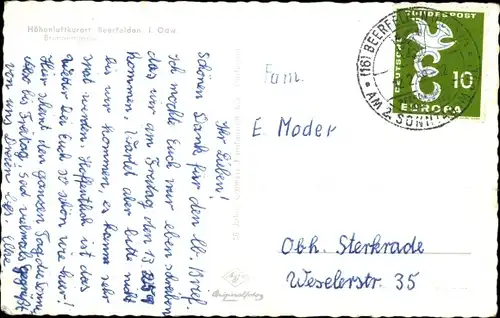 Höhenluftkurort Beerfelden i. Odw.
Ihr Lieben!
Schönen Dank für den lb. Brief.
Ich möchte Euch nur eben schreiben
das wir am Freitag den 13.
kommen, Wartet aber bitte nicht
bis wir kommen, es kann sehr
spät werden. Hoffentlich ist das
Wetter bei Euch so schön wie hier!
Hier scheint den ganzen Tag die Sonne.
Also bis Freitag! Seid vielmals gegrüßt
von uns Dreien
Fam.
E. Moder
Obh. Sterkrade
Weselerstr. 35
Originalfoto
(16) BEERFELDEN
AM 2. SONNTAG
DEUTSCHE BUNDESPOST
10
EUROPA